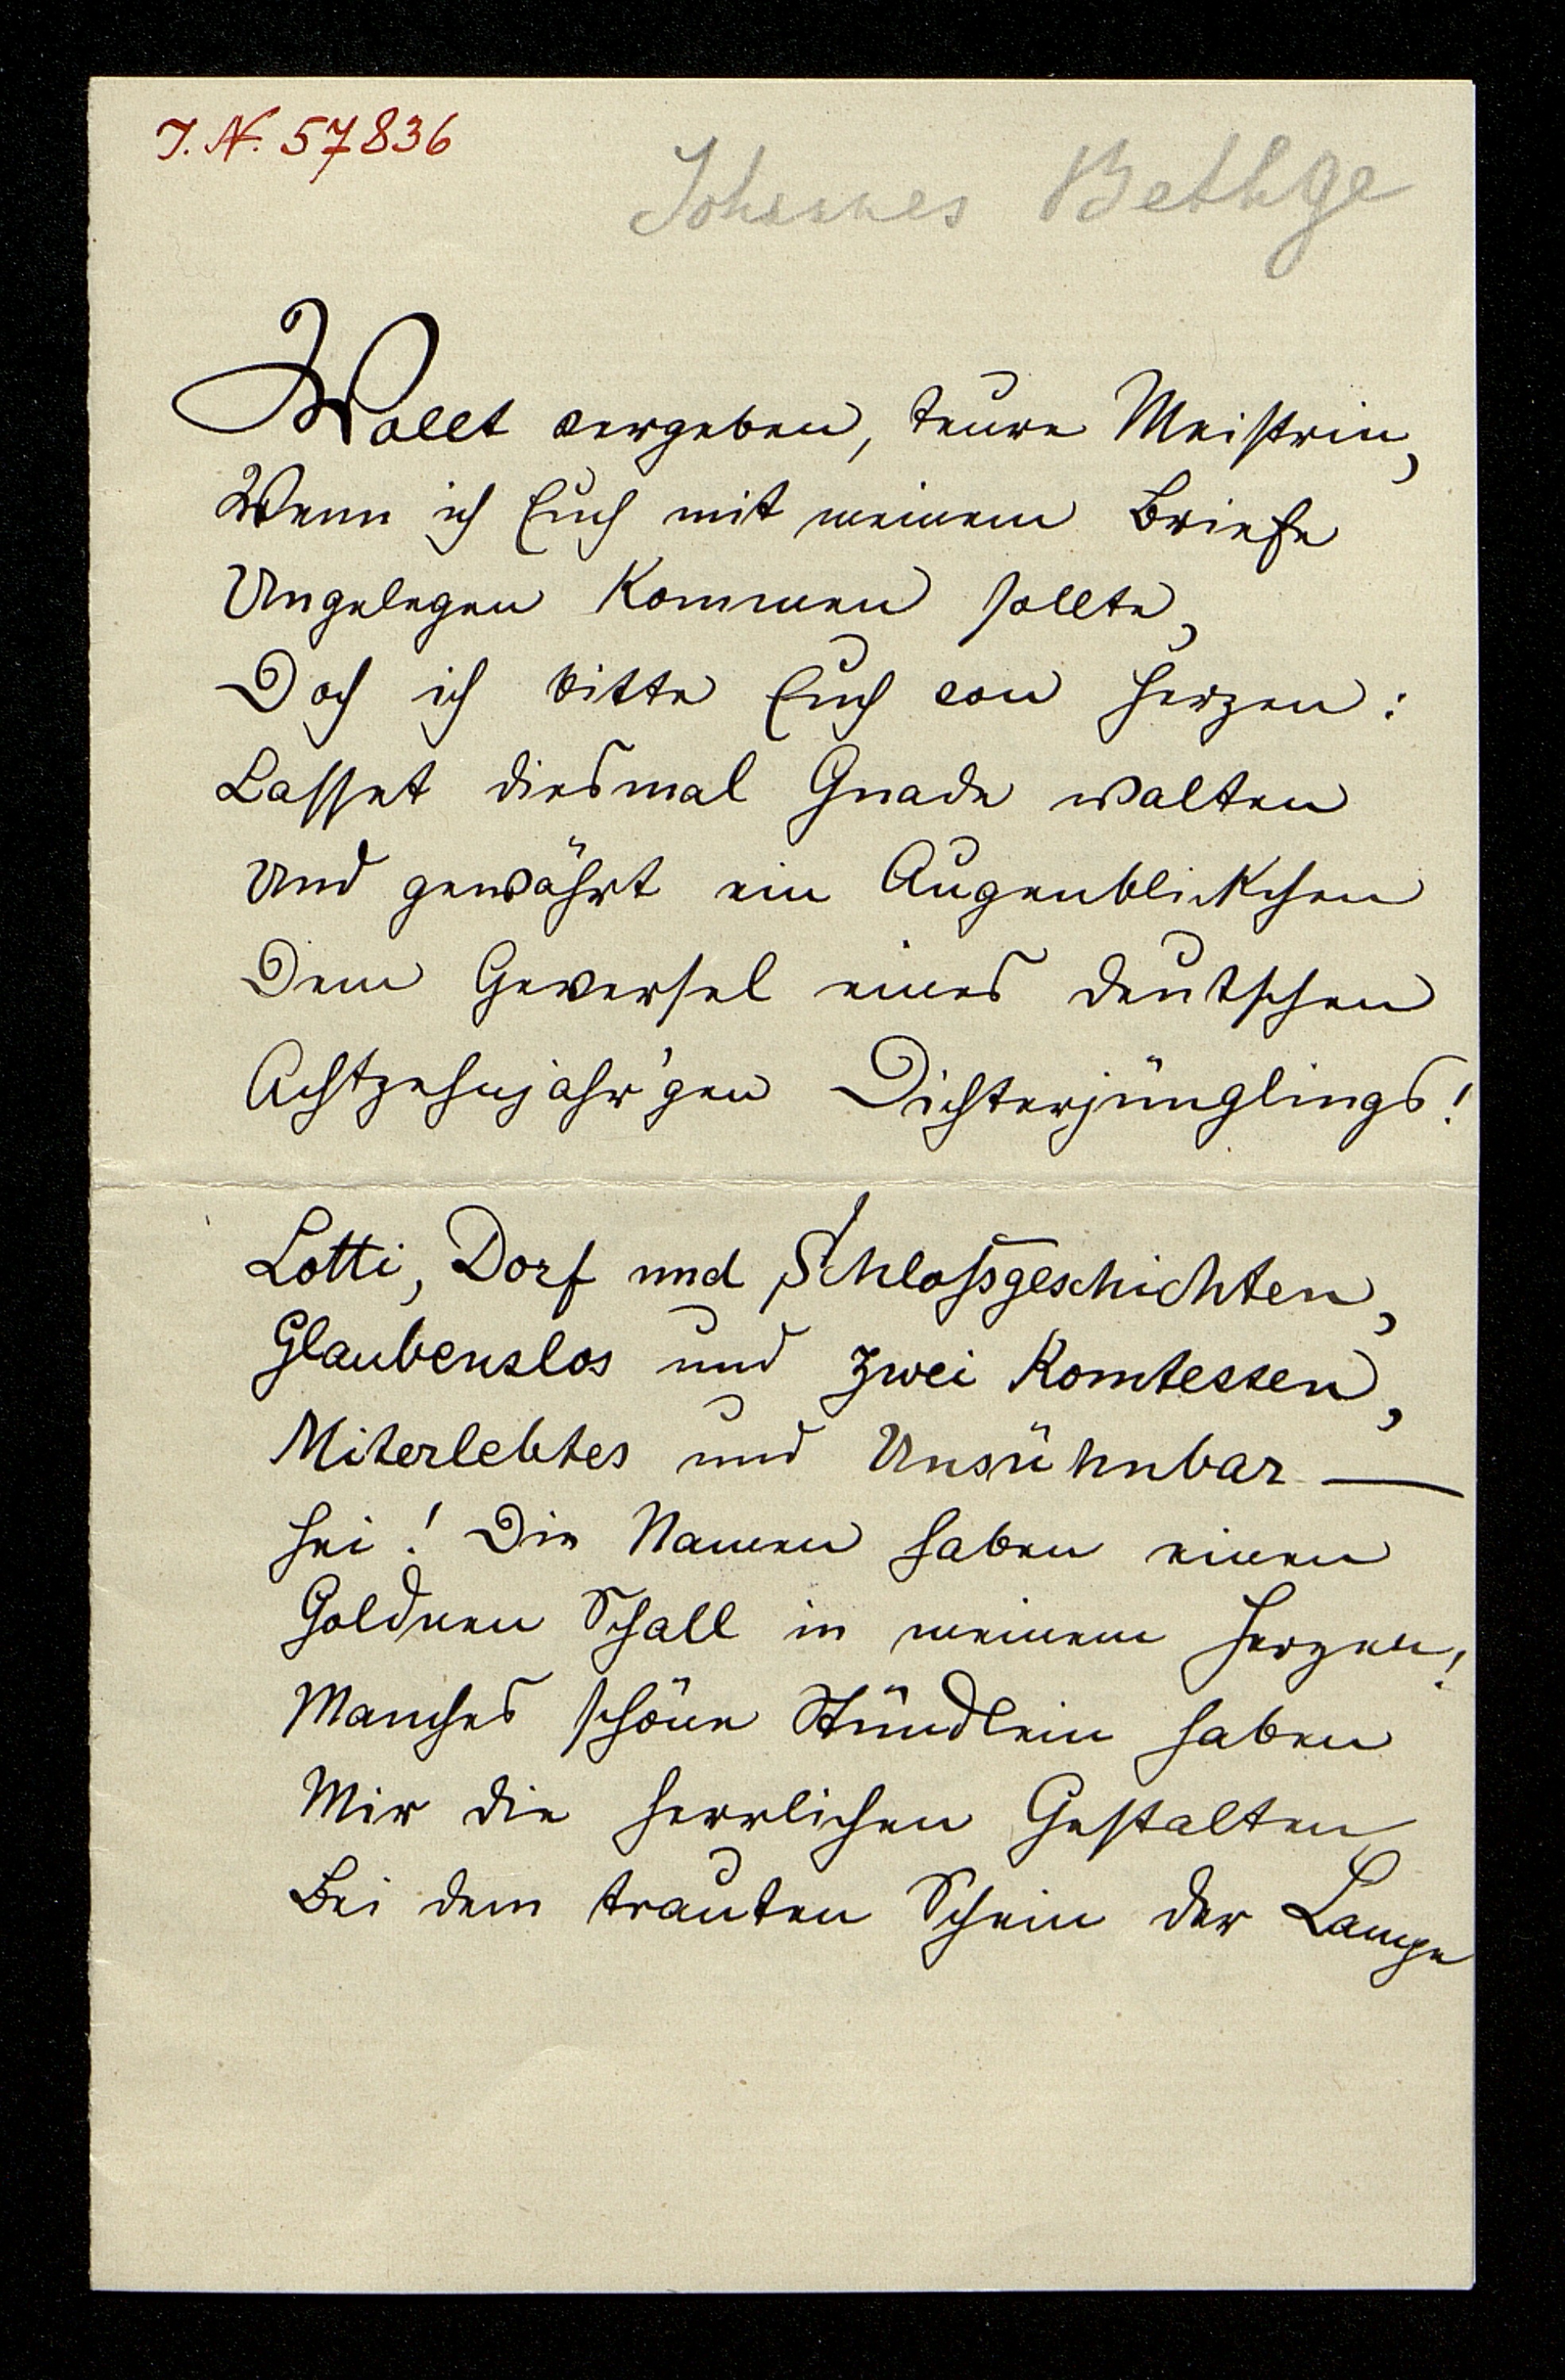 I. N. 57836
Johannes Bethge
Wollt vergeben, teure Meistrin,
Wenn ich Euch mit meinem Briefe
Ungelegen kommen sollte,
Doch ich bitte Euch von Herzen:
Lasset diesmal Gnade walten
Und gewährt ein Augenblickchen
Dem Geversel eines deutschen
Achtzehnjähr'gen Dichterjünglings!
Lotti, Dorf und Schloßgeschichten,
Glaubenslos und zwei Komtessen,
Miterlebtes und Unsühnbar —
Hei! Die Namen haben einen
Goldnen Schall in meinem Herzen!
Manches schöne Stündlein haben
Mir die herrlichen Gestalten
Bei dem trauten Schein der Lampe